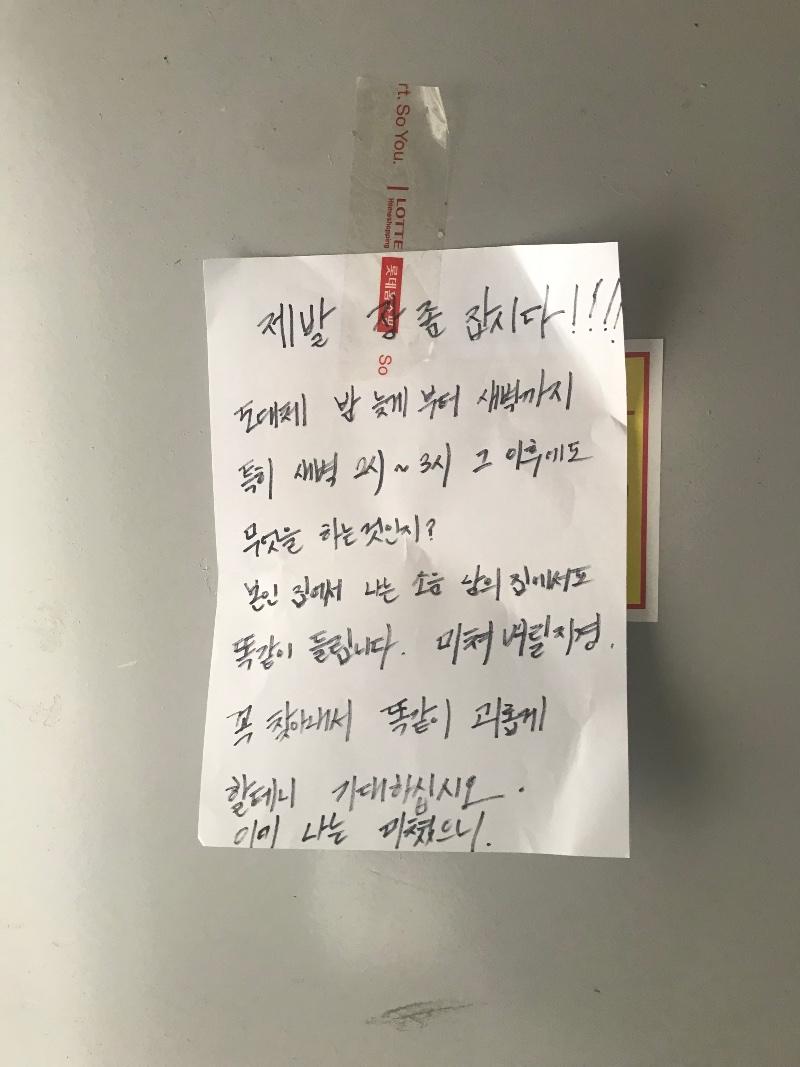 rt. So You.
LOTTE
Homeshopping
롯데홈
So
제발 잠 좀 잡시다!!!!
도대체 밤 늦게 부터 새벽까지
특히 새벽 2시~3시 그 이후에도
무엇을 하는것인지?
본인 집에서 나는 소음 남의 집에서도
똑같이 들립니다. 미쳐 버릴지경.
꼭 찾아내서 똑같이 괴롭게
할테니 기대하십시오.
이미 나는 미쳤으니.